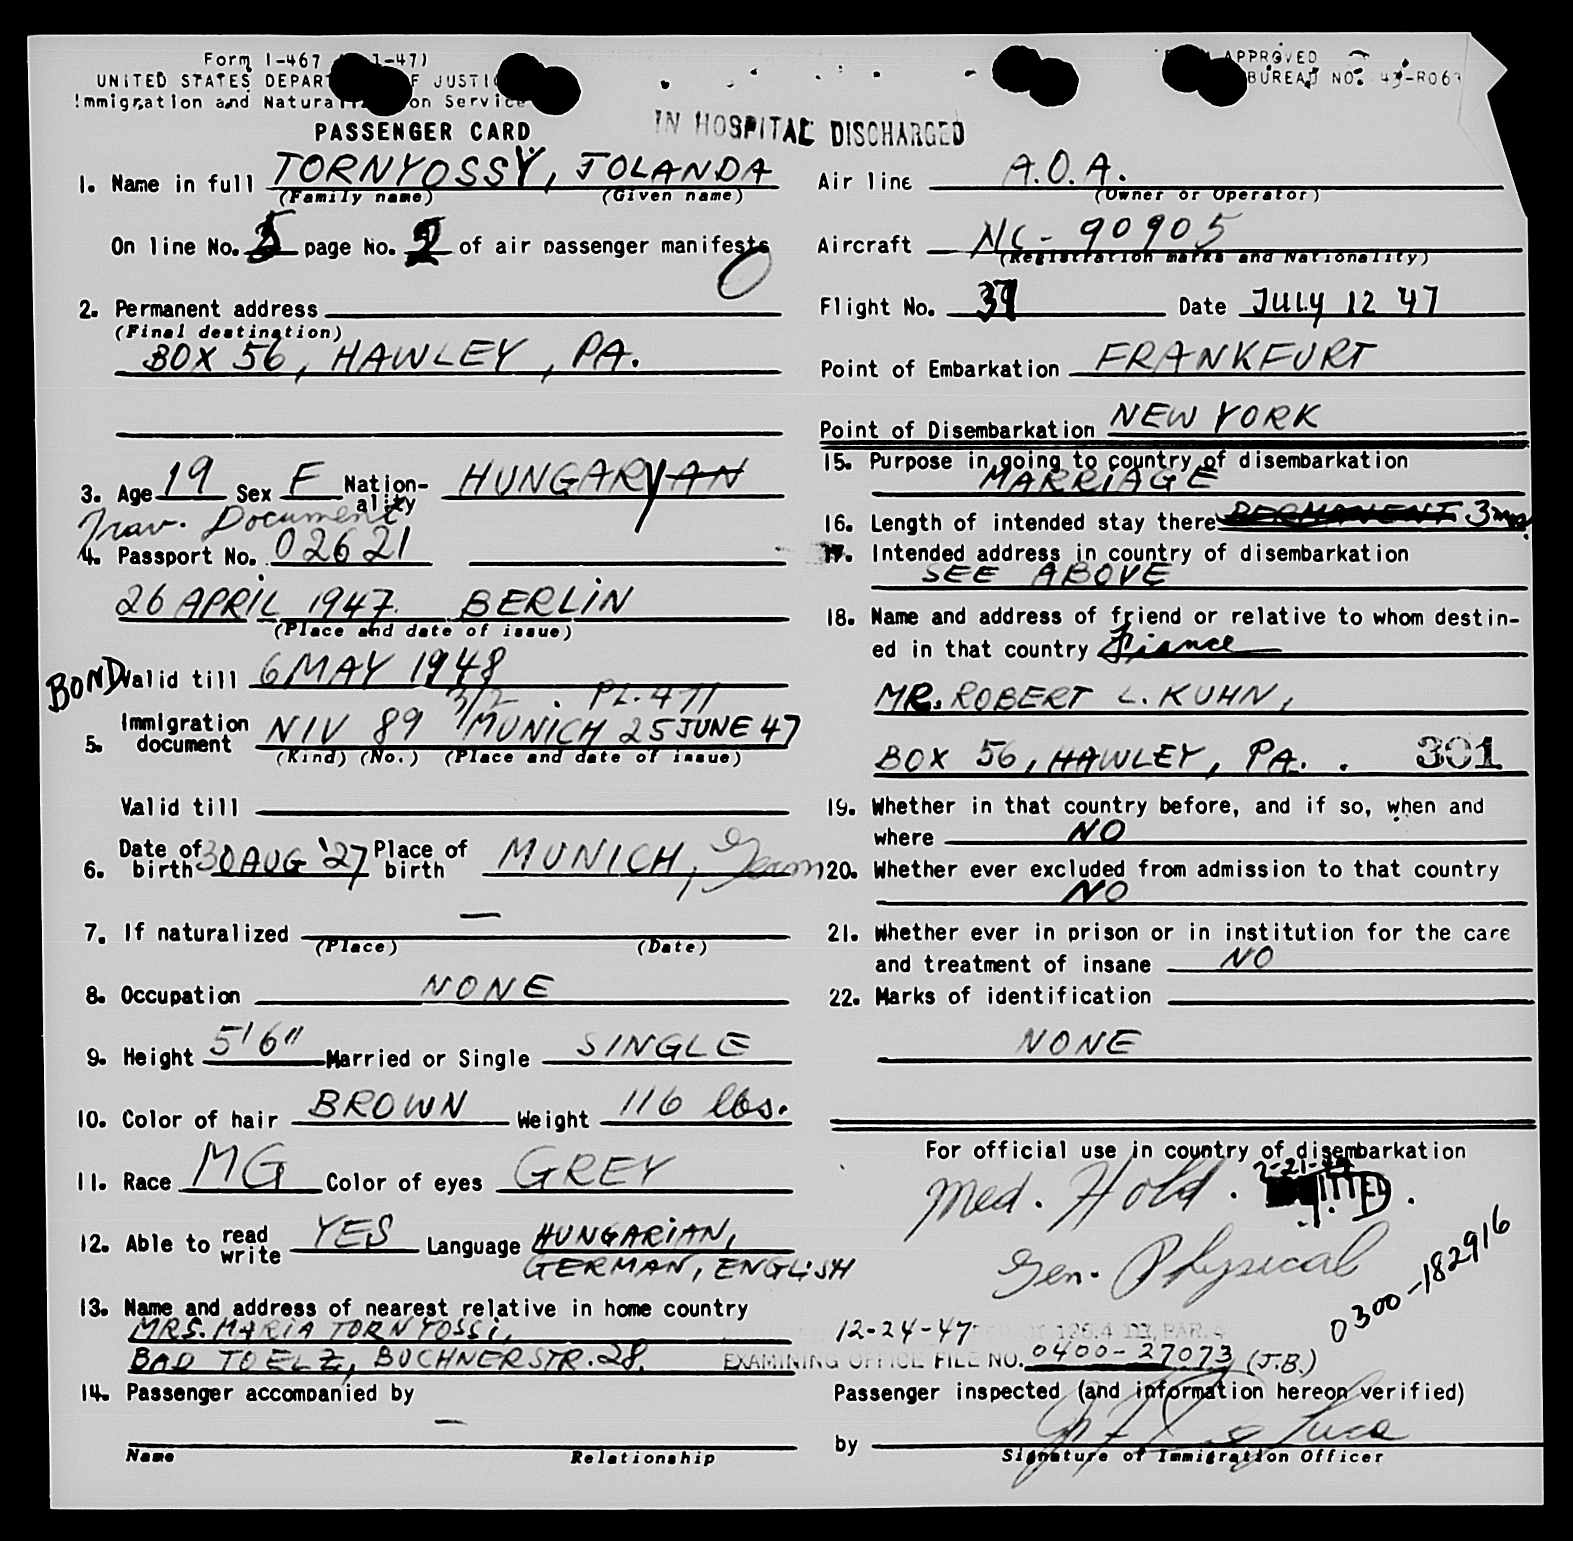 Form I-467 1-47)
UNITED STATES DEPAR F JUSTI
Immigration and Natura on Service
PASSENGER CARD
IN HOSPITAL DISCHARGED
APPROVED
BUREAU NO. 43-R06
1. Name in full TORNYOSSY, JOLANDA
(Family name) (Given name)
On line No. 5 page No. 2 of air passenger manifests
2. Permanent address
(Final destination)
BOX 56, HAWLEY, PA.
3. Age 19 Sex F Nation-ality HUNGARYAN
Trav. Document
4. Passport No. 02621
26 APRIL 1947. BERLIN
(Place and date of issue)
BOND Valid till 6 MAY 1948
3/2 . PL. 471
5. Immigration document NIV 89 MUNICH 25 JUNE 47
(Kind) (No.) (Place and date of issue)
Valid till
6. Date of birth 30 AUG '27 Place of birth MUNICH, Germ
7. If naturalized —
(Place) (Date)
8. Occupation NONE
9. Height 5'6" Married or Single SINGLE
10. Color of hair BROWN Weight 116 lbs.
11. Race MG Color of eyes GREY
12. Able to read write YES Language HUNGARIAN,
GERMAN, ENGLISH
13. Name and address of nearest relative in home country
MRS. MARIA TORNYOSSI,
BAD TOELZ, BUCHNERSTR. 28.
14. Passenger accompanied by
—
Name Relationship
Air line A.O.A.
(Owner or Operator)
Aircraft NC-90905
(Registration marks and Nationality)
Flight No. 39 Date JULY 12 47
Point of Embarkation FRANKFURT
Point of Disembarkation NEW YORK
15. Purpose in going to country of disembarkation
MARRIAGE
16. Length of intended stay there PERMANENT 3 mos.
17. Intended address in country of disembarkation
SEE ABOVE
18. Name and address of friend or relative to whom destin-
ed in that country Fiance
MR. ROBERT L. KUHN,
BOX 56, HAWLEY, PA. . 301
19. Whether in that country before, and if so, when and
where NO
20. Whether ever excluded from admission to that country
NO
21. Whether ever in prison or in institution for the care
and treatment of insane NO
22. Marks of identification
NONE
For official use in country of disembarkation
Med. Hold.
Gen. Physical
0300-182916
12-24-47
EXAMINING OFFICE FILE NO. 0400-27073 (J.B.)
Passenger inspected (and information hereon verified)
by
Signature of Immigration Officer